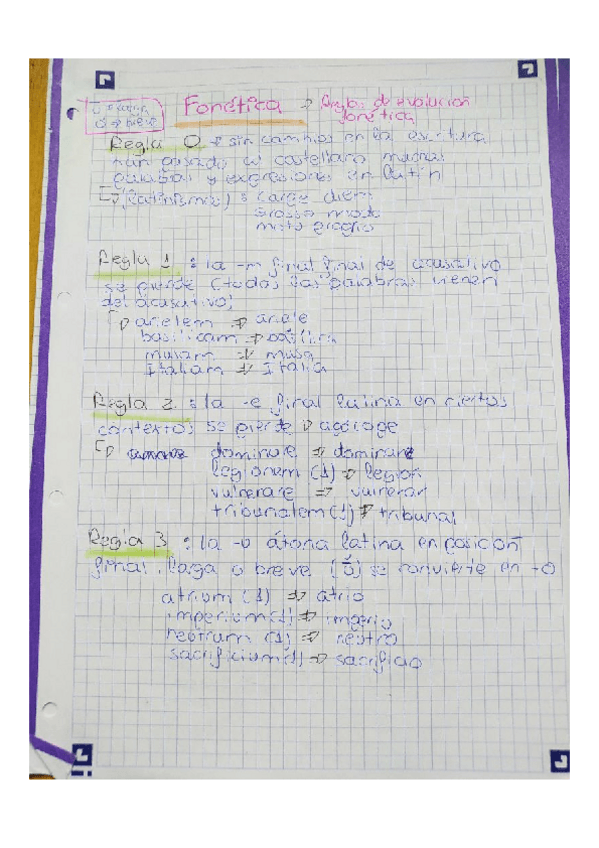 Fonética → Reglas de evolución
fonética
Regla 0 : sin cambios en la escritura
han pasado al castellano muchas
palabras y expresiones en latín
(latinismos) : carpe diem
Grosso modo
motu proprio
Regla 1 : la -m final final de acusativo
se pierde (todas las palabras vienen
del acusativo)
arietem → ariete
basilicam → basílica
musam → musa
Italiam → Italia
Regla 2 : la -e final latina en ciertos
contextos se pierde → apócope
dominare → dominar
legionem (1) → legion
vulnerare → vulnerar
tribunalem (1) → tribunal
Regla 3 : la -u átona latina en posición
final, laga o breve (ŏ) se convierte en -o
atrium (1) → atrio
imperium (1) → imperio
neutrum (1) → neutro
sacrificium (1) → sacrificio